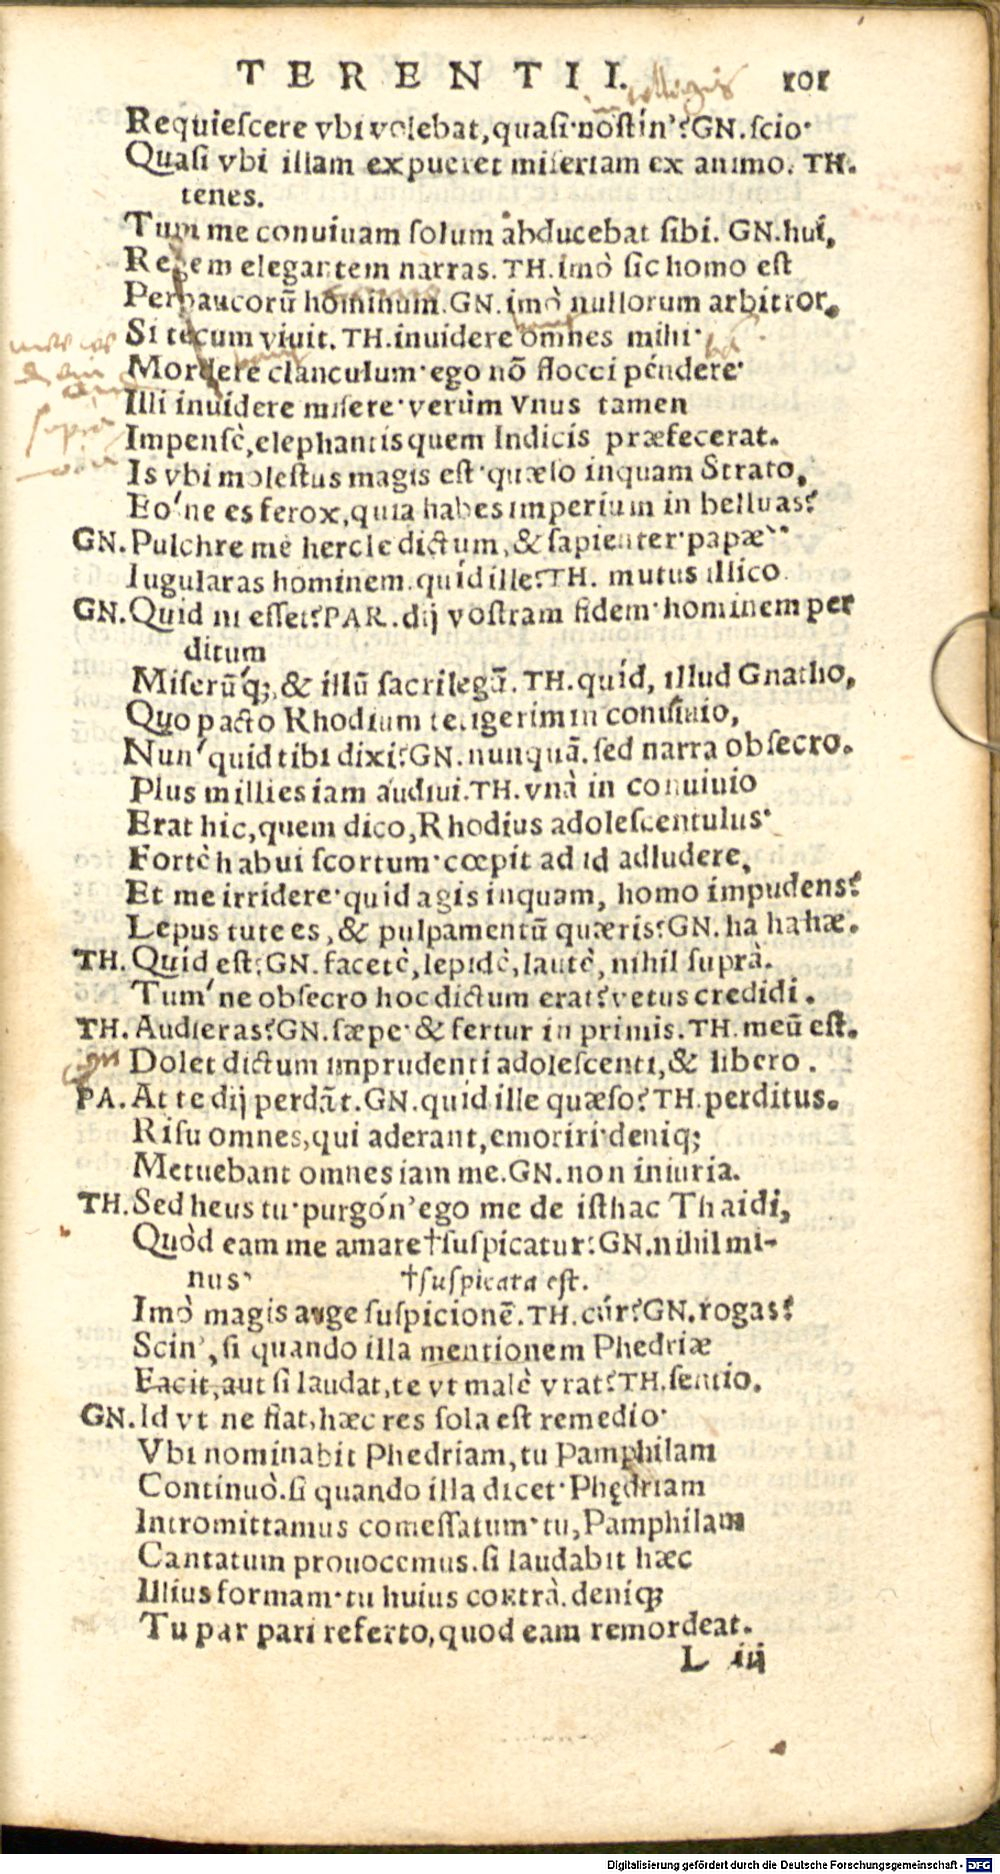 TERENTII. 101
Requiescere vbi volebat, quasi· nostin'? GN. scio·
Quasi vbi illam expueret miseriam ex animo. TH.
tenes.
Tum me conuiuam solum abducebat sibi. GN. hui,
Regem elegantem narras. TH. imò sic homo est
Perpaucorũ hominum. GN. imò nullorum arbitror,
Si tecum viuit. TH. inuidere omnes mihi·
Mordere clanculum· ego nõ flocci péndere·
Illi inuidere misere· verùm vnus tamen
Impensè, elephantis quem Indicis præfecerat.
Is vbi molestus magis est· quæso inquam Strato,
Eo'ne es ferox, quia habes imperium in belluas?
GN. Pulchre me hercle dictum, & sapienter· papæ··
Iugularas hominem. quid ille? TH. mutus illico.
GN. Quid ni esset? PAR. dij vostram fidem· hominem per
ditum
Miserũ'q;, & illũ sacrilegũ. TH. quid, illud Gnatho,
Quo pacto Rhodium tetigerim in conuiuio,
Nun'quid tibi dixi? GN. nunquã. sed narra obsecro.
Plus millies iam audiui. TH. vnà in conuiuio
Erat hic, quem dico, Rhodius adolescentulus·
Fortè habui scortum· cœpit ad id adludere,
Et me irridere· quid agis inquam, homo impudens?
Lepus tute es, & pulpamentũ quæris? GN. ha ha hæ.
TH. Quid est? GN. facetè, lepidè, lautè, nihil suprà.
Tum'ne obsecro hoc dictum erat? vetus credidi.
TH. Audieras? GN. sæpe· & fertur in primis. TH. meũ est.
gn Dolet dictum imprudenti adolescenti, & libero.
PA. At te dij perdãt. GN. quid ille quæso? TH. perditus.
Risu omnes, qui aderant, emoriri· deniq;
Metuebant omnes iam me. GN. non iniuria.
TH. Sed heus tu· purgón' ego me de isthac Thaidi,
Quòd eam me amare †suspicatur? GN. nihil mi-
nus· †suspicata est.
Imò magis auge suspicionẽ. TH. cúr? GN. rogas?
Scin', si quando illa mentionem Phedriæ
Facit, aut si laudat, te vt malè vrat? TH. sentio.
GN. Id vt ne fiat, hæc res sola est remedio·
Vbi nominabit Phedriam, tu Pamphilam
Continuò. si quando illa dicet· Phędriam
Intromittamus comessatum· tu, Pamphilam
Cantatum prouocemus. si laudabit hæc
Illius formam· tu huius contrà. deniq;
Tu par pari referto, quod eam remordeat.
L iij
Digitalisierung gefördert durch die Deutsche Forschungsgemeinschaft - DFG